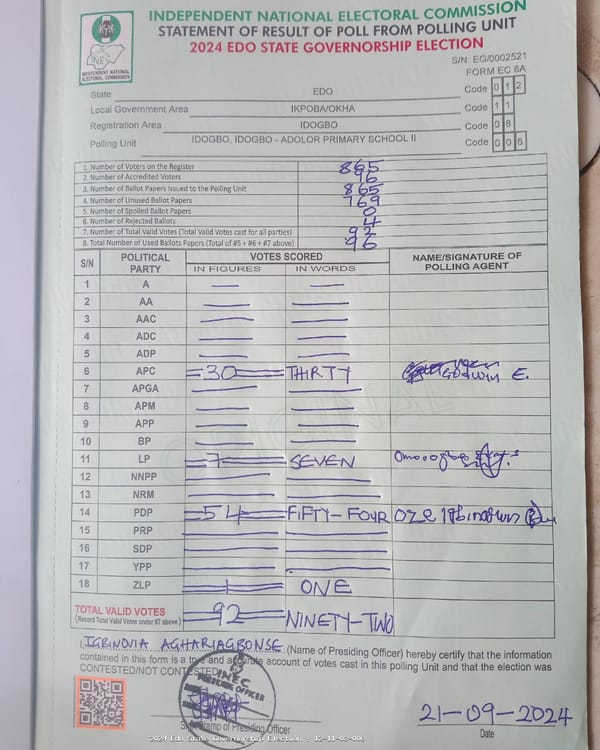 INDEPENDENT NATIONAL ELECTORAL COMMISSION
STATEMENT OF RESULT OF POLL FROM POLLING UNIT
2024 EDO STATE GOVERNORSHIP ELECTION
INEC
INDEPENDENT NATIONAL ELECTORAL COMMISSION
S/N: EG/0002521
FORM EC 8A
State EDO Code 0 1 2
Local Government Area IKPOBA/OKHA Code 1 1
Registration Area IDOGBO Code 0 8
Polling Unit IDOGBO, IDOGBO - ADOLOR PRIMARY SCHOOL II Code 0 0 6
1. Number of Voters on the Register 865
2. Number of Accredited Voters 96
3. Number of Ballot Papers Issued to the Polling Unit 865
4. Number of Unused Ballot Papers 769
5. Number of Spoiled Ballot Papers 0
6. Number of Rejected Ballots 4
7. Number of Total Valid Votes (Total Valid Votes cast for all parties) 92
8. Total Number of Used Ballots Papers (Total of #5 + #6 + #7 above) 96
S/N POLITICAL PARTY VOTES SCORED NAME/SIGNATURE OF POLLING AGENT
IN FIGURES IN WORDS
1 A
2 AA
3 AAC
4 ADC
5 ADP
6 APC =30= THIRTY GODWIN E.
7 APGA
8 APM
9 APP
10 BP
11 LP =7= SEVEN
12 NNPP
13 NRM
14 PDP =54= FIFTY-FOUR
15 PRP
16 SDP
17 YPP
18 ZLP 1 ONE
TOTAL VALID VOTES =92= NINETY-TWO
(Record Total Valid Votes under #7 above)
I, IGBINOVIA AGHARIAGBONSE (Name of Presiding Officer) hereby certify that the information
contained in this form is a true and accurate account of votes cast in this polling Unit and that the election was
CONTESTED/NOT CONTESTED
INEC
PRESIDING OFFICER
Stamp of Presiding Officer
21-09-2024
Date